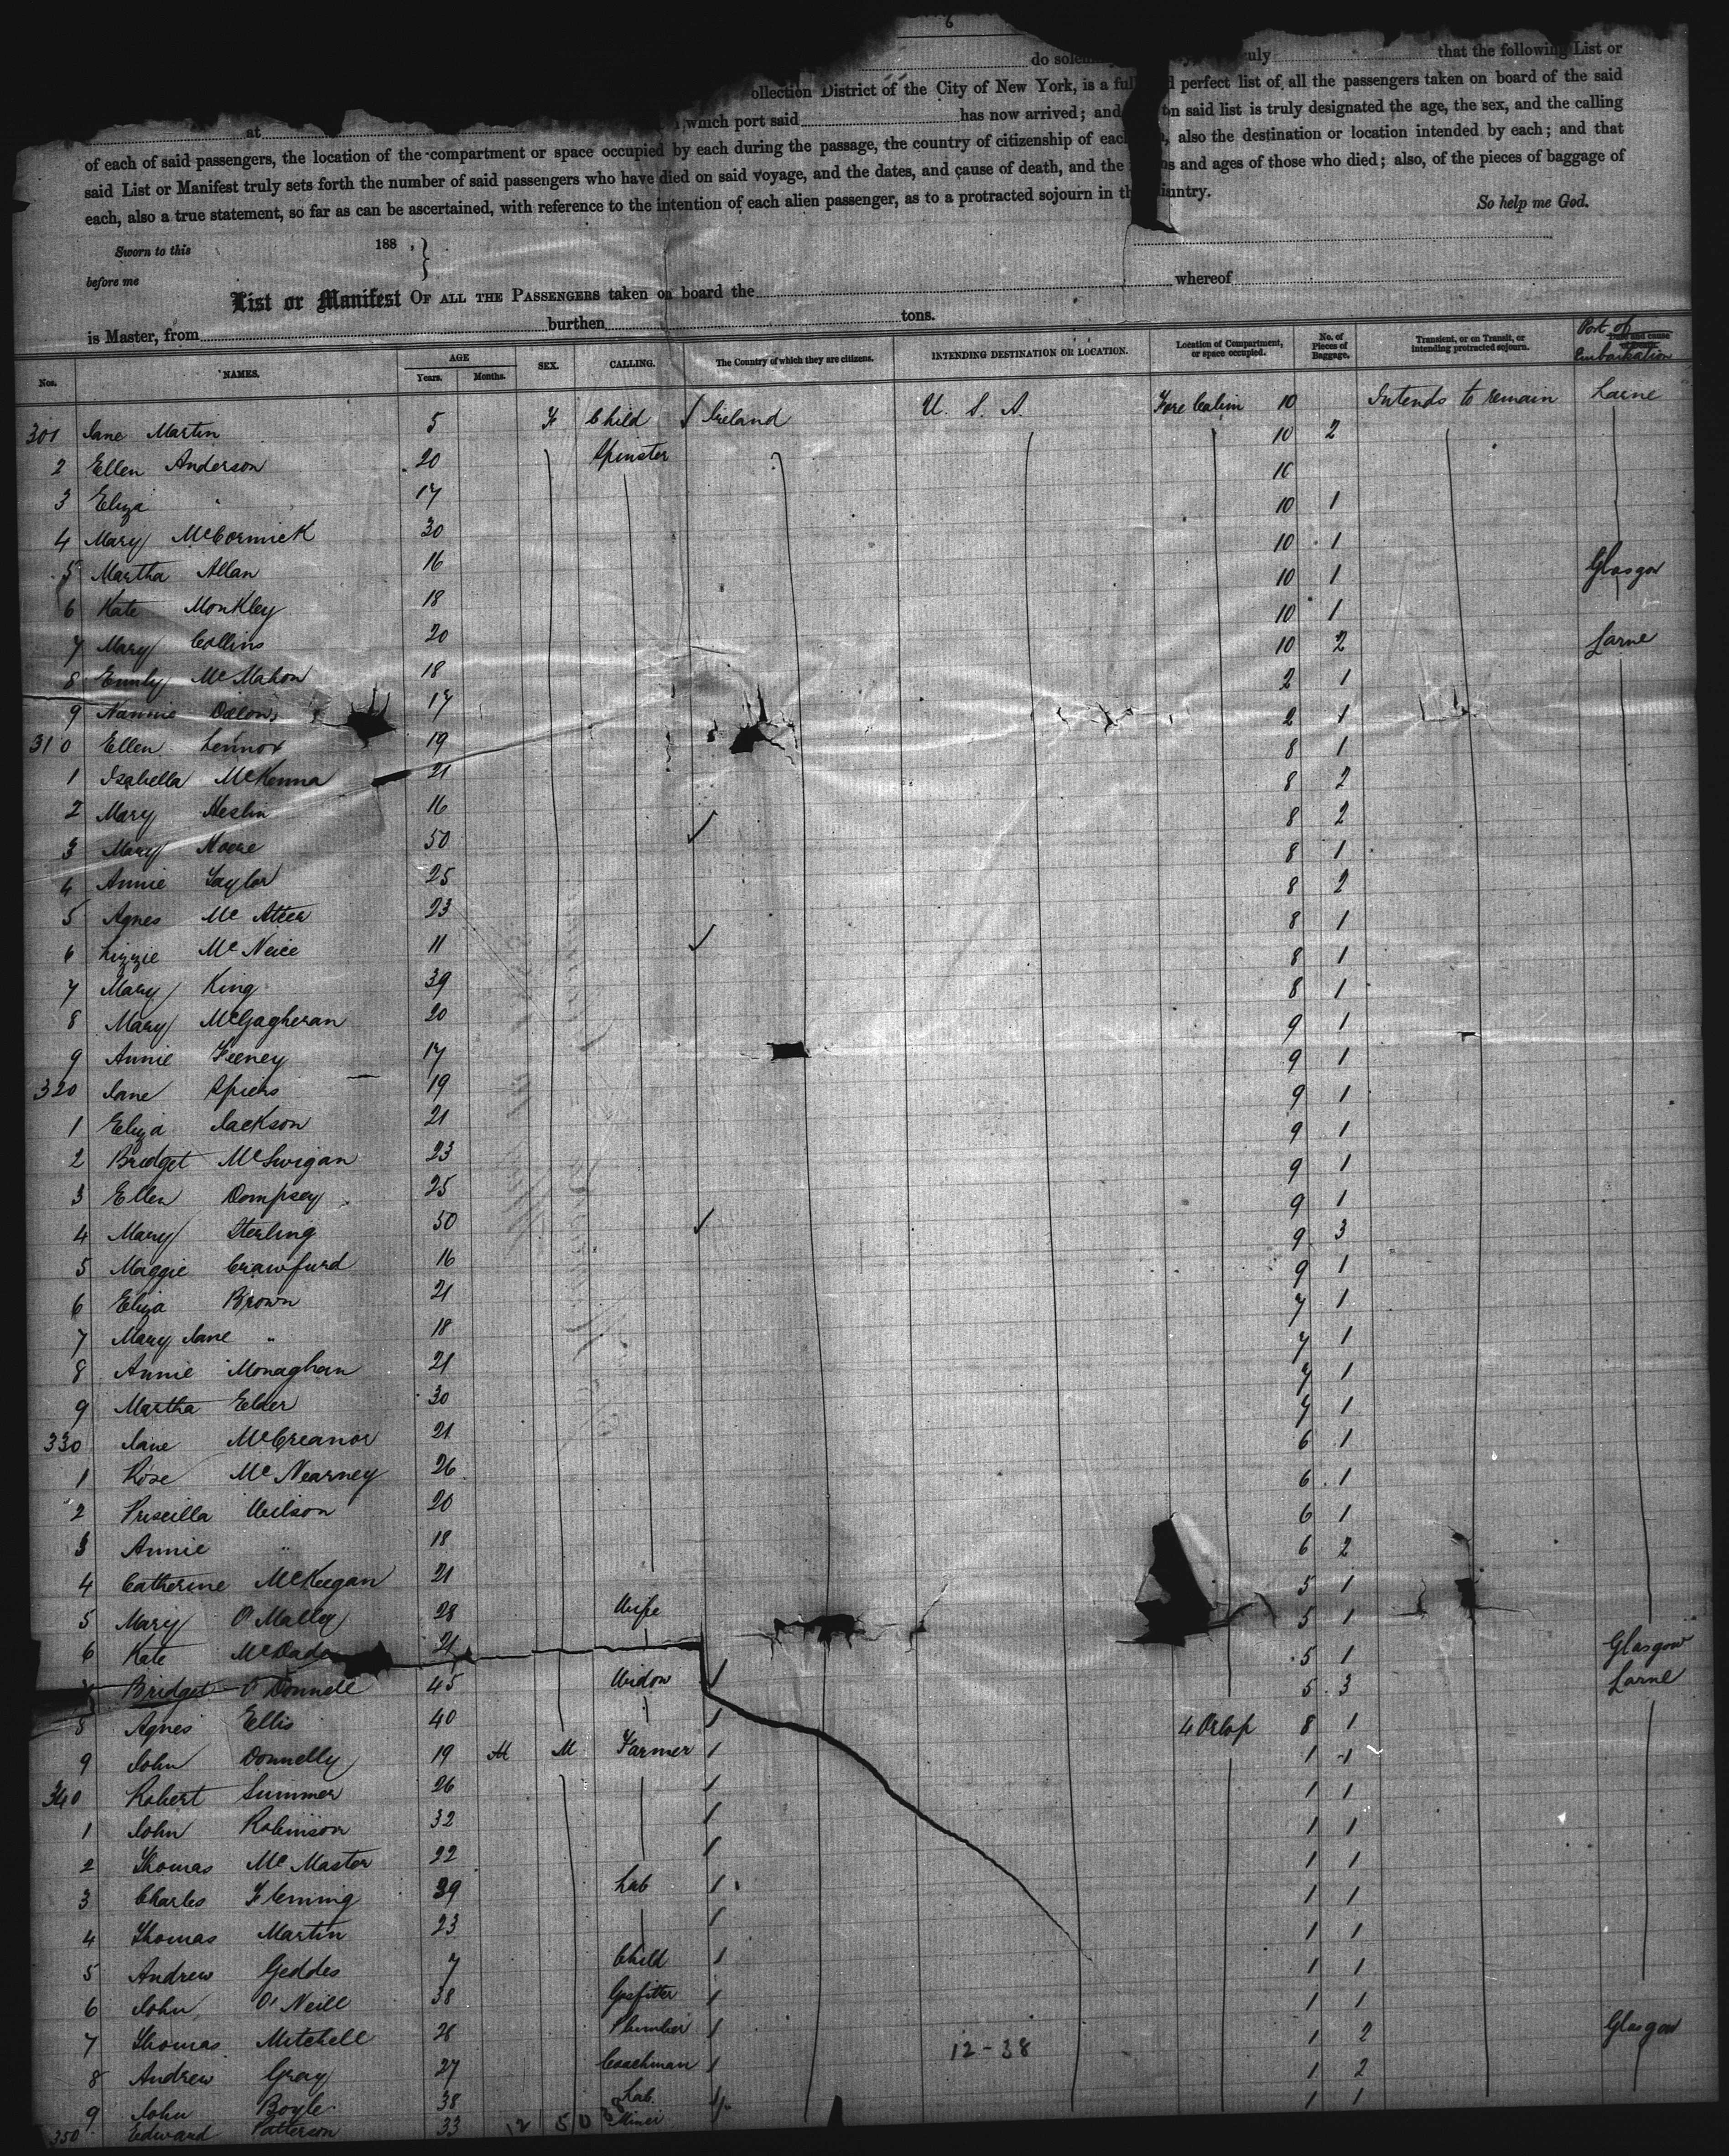 6
do solem uly that the following List or
ollection District of the City of New York, is a full d perfect list of all the passengers taken on board of the said
at which port said has now arrived; and on said list is truly designated the age, the sex, and the calling
of each of said passengers, the location of the compartment or space occupied by each during the passage, the country of citizenship of each , also the destination or location intended by each; and that
said List or Manifest truly sets forth the number of said passengers who have died on said voyage, and the dates, and cause of death, and the s and ages of those who died; also, of the pieces of baggage of
each, also a true statement, so far as can be ascertained, with reference to the intention of each alien passenger, as to a protracted sojourn in th untry.
So help me God.
Sworn to this 188 , }
before me
List or Manifest OF ALL THE PASSENGERS taken on board the whereof
is Master, from burthen tons.
Nos. NAMES. AGE Years. Months. SEX. CALLING. The Country of which they are citizens. INTENDING DESTINATION OR LOCATION. Location of Compartment, or space occupied. No. of Pieces of Baggage. Transient, or on Transit, or intending protracted sojourn. Port of Embarkation
301 Jane Martin 5 F Child Ireland U. S. A. Fore Cabin 10 Intends to remain Larne
2 Ellen Anderson 20 Spinster 10 2
3 Eliza " 17 10
4 Mary McCormick 30 10 1
5 Martha Allan 16 10 1 Glasgow
6 Kate Monkley 18 10 1
7 Mary Collins 20 10 1 Larne
8 Emily McMahon 18 10 2
9 Nannie 17 2 1
310 Ellen Lennox 19 2 1
1 Isabella McKenna 21 8 1
2 Mary Heslin 16 8 2
3 Mary Moore 50 8 2
4 Annie Taylor 25 8 1
5 Agnes McAteer 23 8 2
6 Lizzie McNeice 11 8 1
7 Mary King 39 8 1
8 Mary McGagheran 20 8 1
9 Annie Feeney 17 9 1
320 Jane Spiers 19 9 1
1 Eliza Jackson 21 9 1
2 Bridget McSwigan 23 9 1
3 Ellen Dempsey 25 9 1
4 Mary Sterling 50 9 1
5 Maggie Crawfurd 16 9 3
6 Eliza Brown 21 9 1
7 Mary Jane " 18 7 1
8 Annie Monaghan 21 7 1
9 Martha Elder 30 7 1
330 Jane McCreanor 21 7 1
1 Rose McNearney 26 6 1
2 Priscilla Wilson 20 6 1
3 Annie " 18 6 1
4 Catherine McKeegan 21 6 2
5 Mary O'Malley 28 Wife 5 1
6 Kate McDade 21 5 1 Glasgow
7 Bridget O'Donnell 45 Widow 5 1 Larne
8 Agnes Ellis 40 5 3
9 John Donnelly 19 M M Farmer 4 Orlop 8 1
340 Robert Summer 26 1 1
1 John Robinson 32 1 1
2 Thomas McMaster 22 1 1
3 Charles Fleming 39 Lab 1 1
4 Thomas Martin 23 1 1
5 Andrew Geddes 7 Child 1 1
6 John O'Neill 38 Gasfitter 1 1
7 Thomas Mitchell 28 Plumber 1 1 Glasgow
8 Andrew Gray 27 Coachman 12-38 1 2
9 John Boyle 38 Lab. 1 2
350 Edward Patterson 33 12 50 Miner 1 1